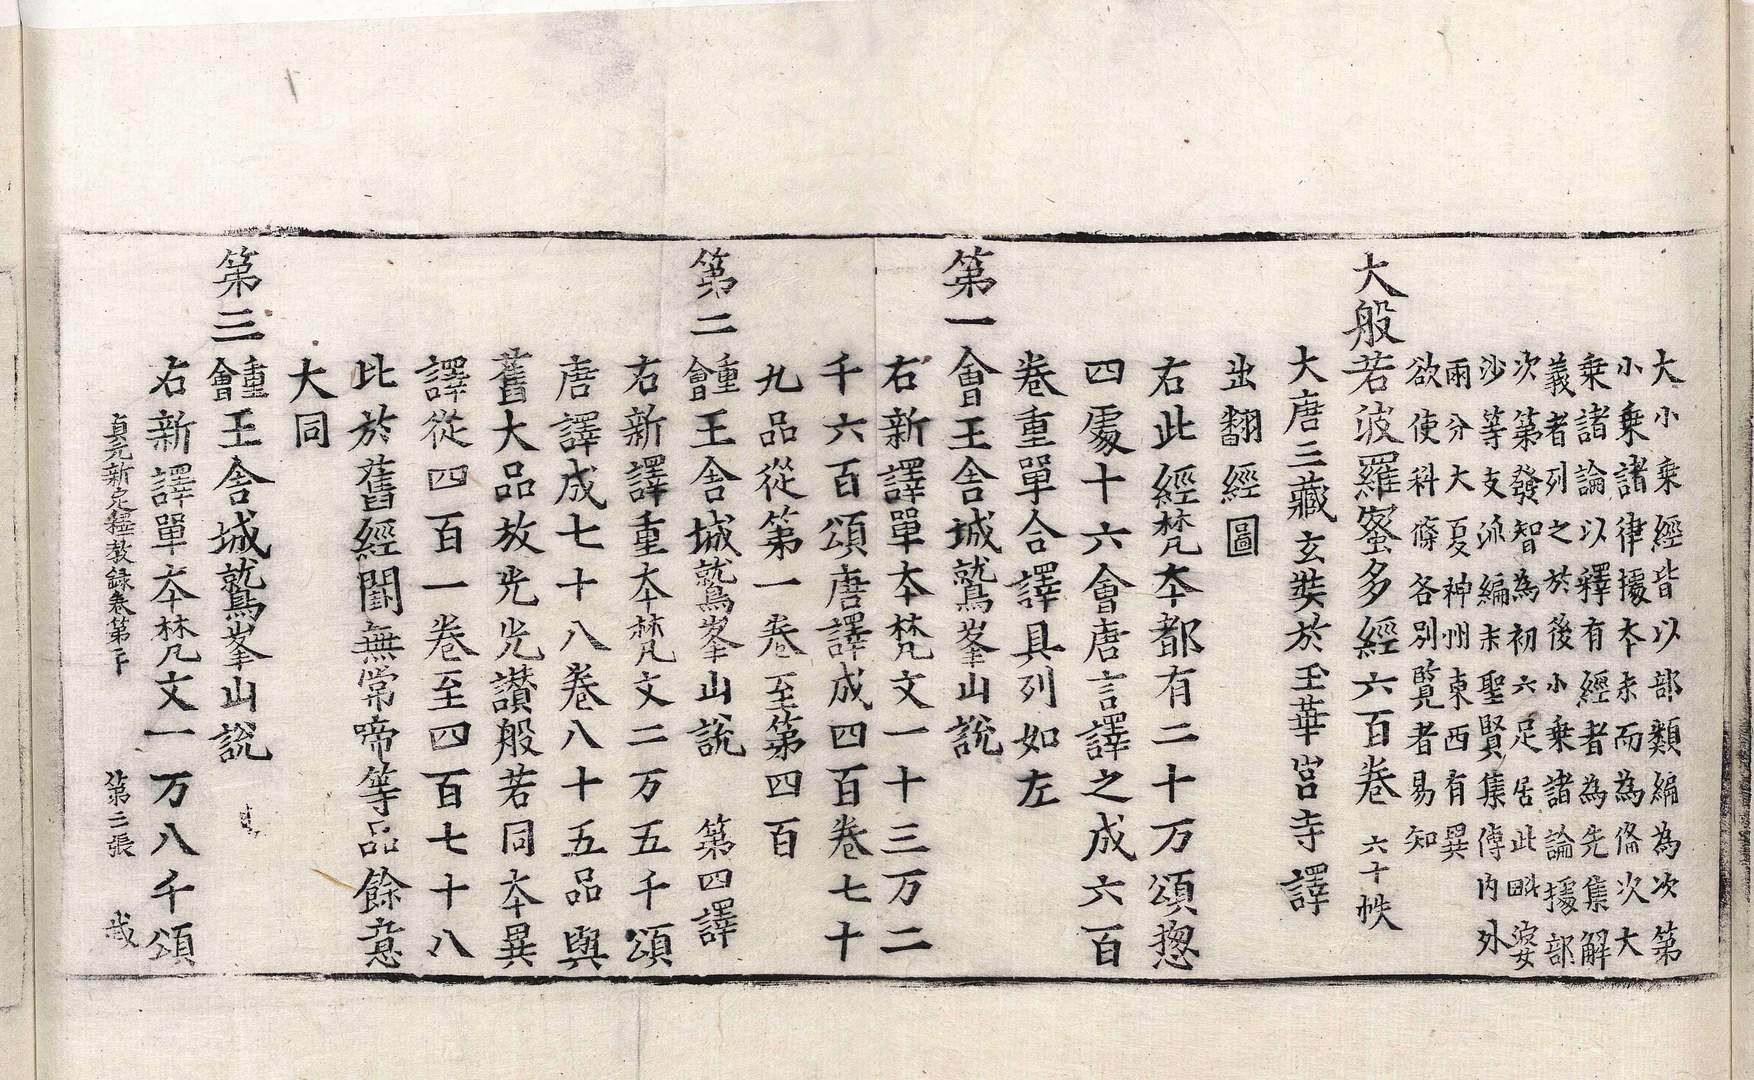 大小乘經皆以部類編為次第
小乘諸律據本末而為倫次大
乘諸論以釋有經者為先集解
義者列之於後小乘諸論據部
次第發智為初六足居此毗婆
沙等支派編末聖賢集傳內外
兩分大夏神州東西有異
欲使科條各別覽者易知
大般若波羅蜜多經六百卷 六十帙
大唐三藏玄奘於玉華宮寺譯
出翻經圖
右此經梵本都有二十万頌揔
四處十六會唐言譯之成六百
卷重單合譯具列如左
第一會王舍城鷲峯山說
右新譯單本梵文一十三万二
千六百頌唐譯成四百卷七十
九品從第一卷至第四百
第二會重王舍城鷲峯山說 第四譯
右新譯重本梵文二万五千頌
唐譯成七十八卷八十五品與
舊大品放光光讚般若同本異
譯從四百一卷至四百七十八
此於舊經闕無常啼等品餘意
大同
第三會重王舍城鷲峯山說
右新譯單本梵文一万八千頌
貞元新定釋教録卷第二十 第二張